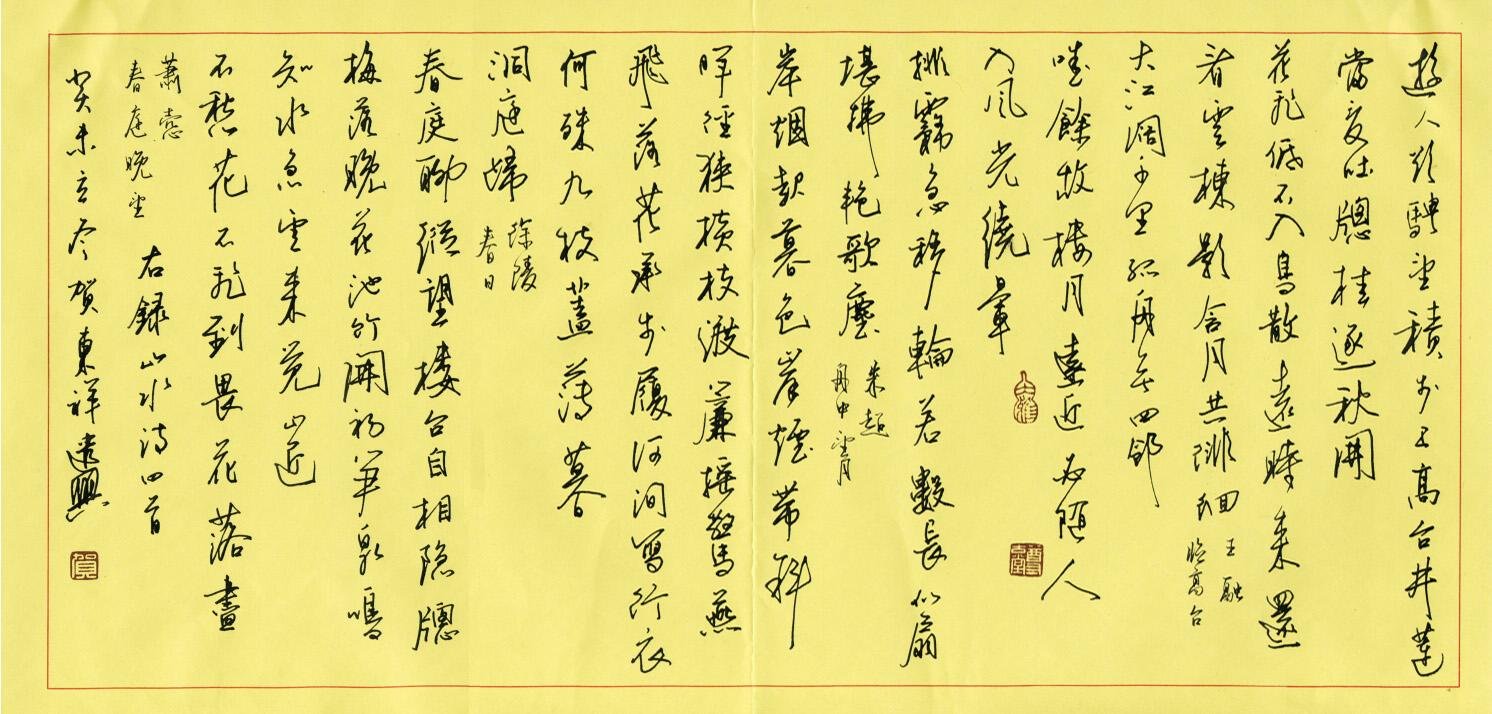 遊人欲騁望積步上高台井蓮
當夏吐牕桂逐秋開
花飛低不入鳥散遠時來還
看雲棟影含月共徘徊
王融
臨高台
大江闊千里孤舟無四鄰
唯餘故楼月遠近必隨人
入風光繞暈
排霧急移輪若教長似扇
堪拂艷歌塵
朱超
舟中望月
岸烟起暮色岸煙帶斜
暉徑狹横枝渡簾摇驚燕
飛落花承步履流涧寫行衣
何殊九枝蓋薄暮
洞庭歸
徐陵
春日
春庭聊縱望楼台自相隐牕
梅落晚花池竹開初笋泉鳴
知水急雲来覺山近
不愁花不飛到畏花落盡
蕭愨
春庭晚望
右録山水詩四首
癸未立冬賀東祥遣興
賀